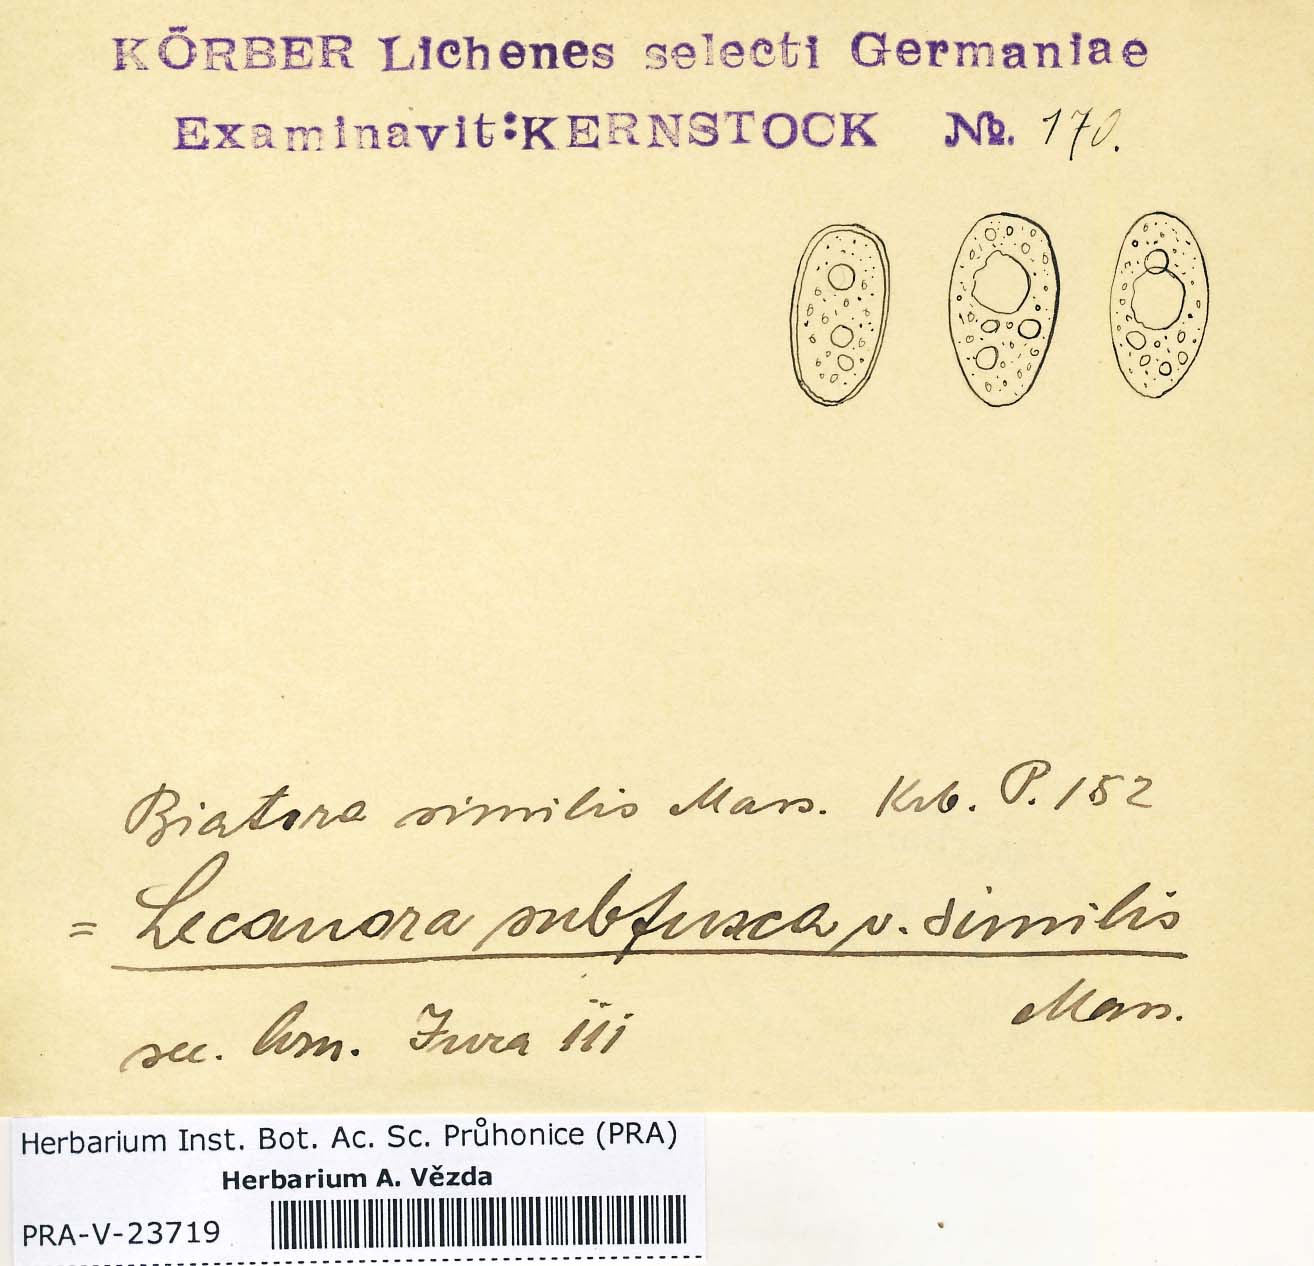 KÖRBER Lichenes selecti Germaniae
Examinavit: KERNSTOCK №. 170.
Biatora similis Mass. Krb. P. 152
= Lecanora subfusca v. similis
Mass.
sec. Arn. Jura iii
Herbarium Inst. Bot. Ac. Sc. Průhonice (PRA)
Herbarium A. Vězda
PRA-V-23719